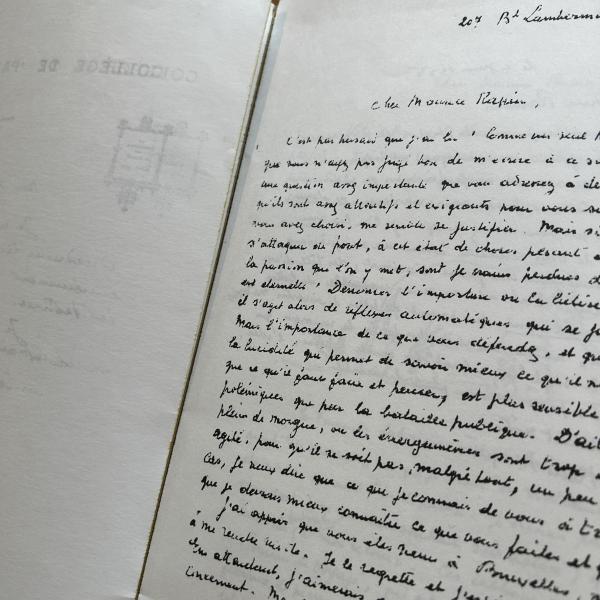 207 Bd Lambermo
COLLÈGE DE PA
Cher Maurice
C'est par hasard que j'ai lu
que vous n'ayez pas jugé bon de m'écrire à ce su
une question assez importante que vous adressez à de
qu'ils sont assez attentifs et exigeants pour vous su
vous avez choisi, me semble se justifier. Mais si
s'attaquer au pont, à cet état de choses pesant e
la passion que l'on y met, sont je
est éternelle ! Dénoncer l'imposture ou la bêtise
il s'agit alors de réflexes automatiques qui se
Mais l'importance de ce que vous défendez, et que
la lucidité qui permet de savoir mieux ce qu'il
que ce qu'il faut faire et penser, est plus sensible
polémiques que par la bataille publique. D'ail
plein de morgue, ou les énergumènes sont trop
agité, pour qu'il ne soit pas, malgré tout, un peu
cas, je veux dire que ce que je connais de vous
que je devrais mieux connaître ce que vous faites et q
J'ai appris que vous êtes venu à Bruxelles,
à me rendre visite. Je le regrette et j'es
En attendant, j'aimerais